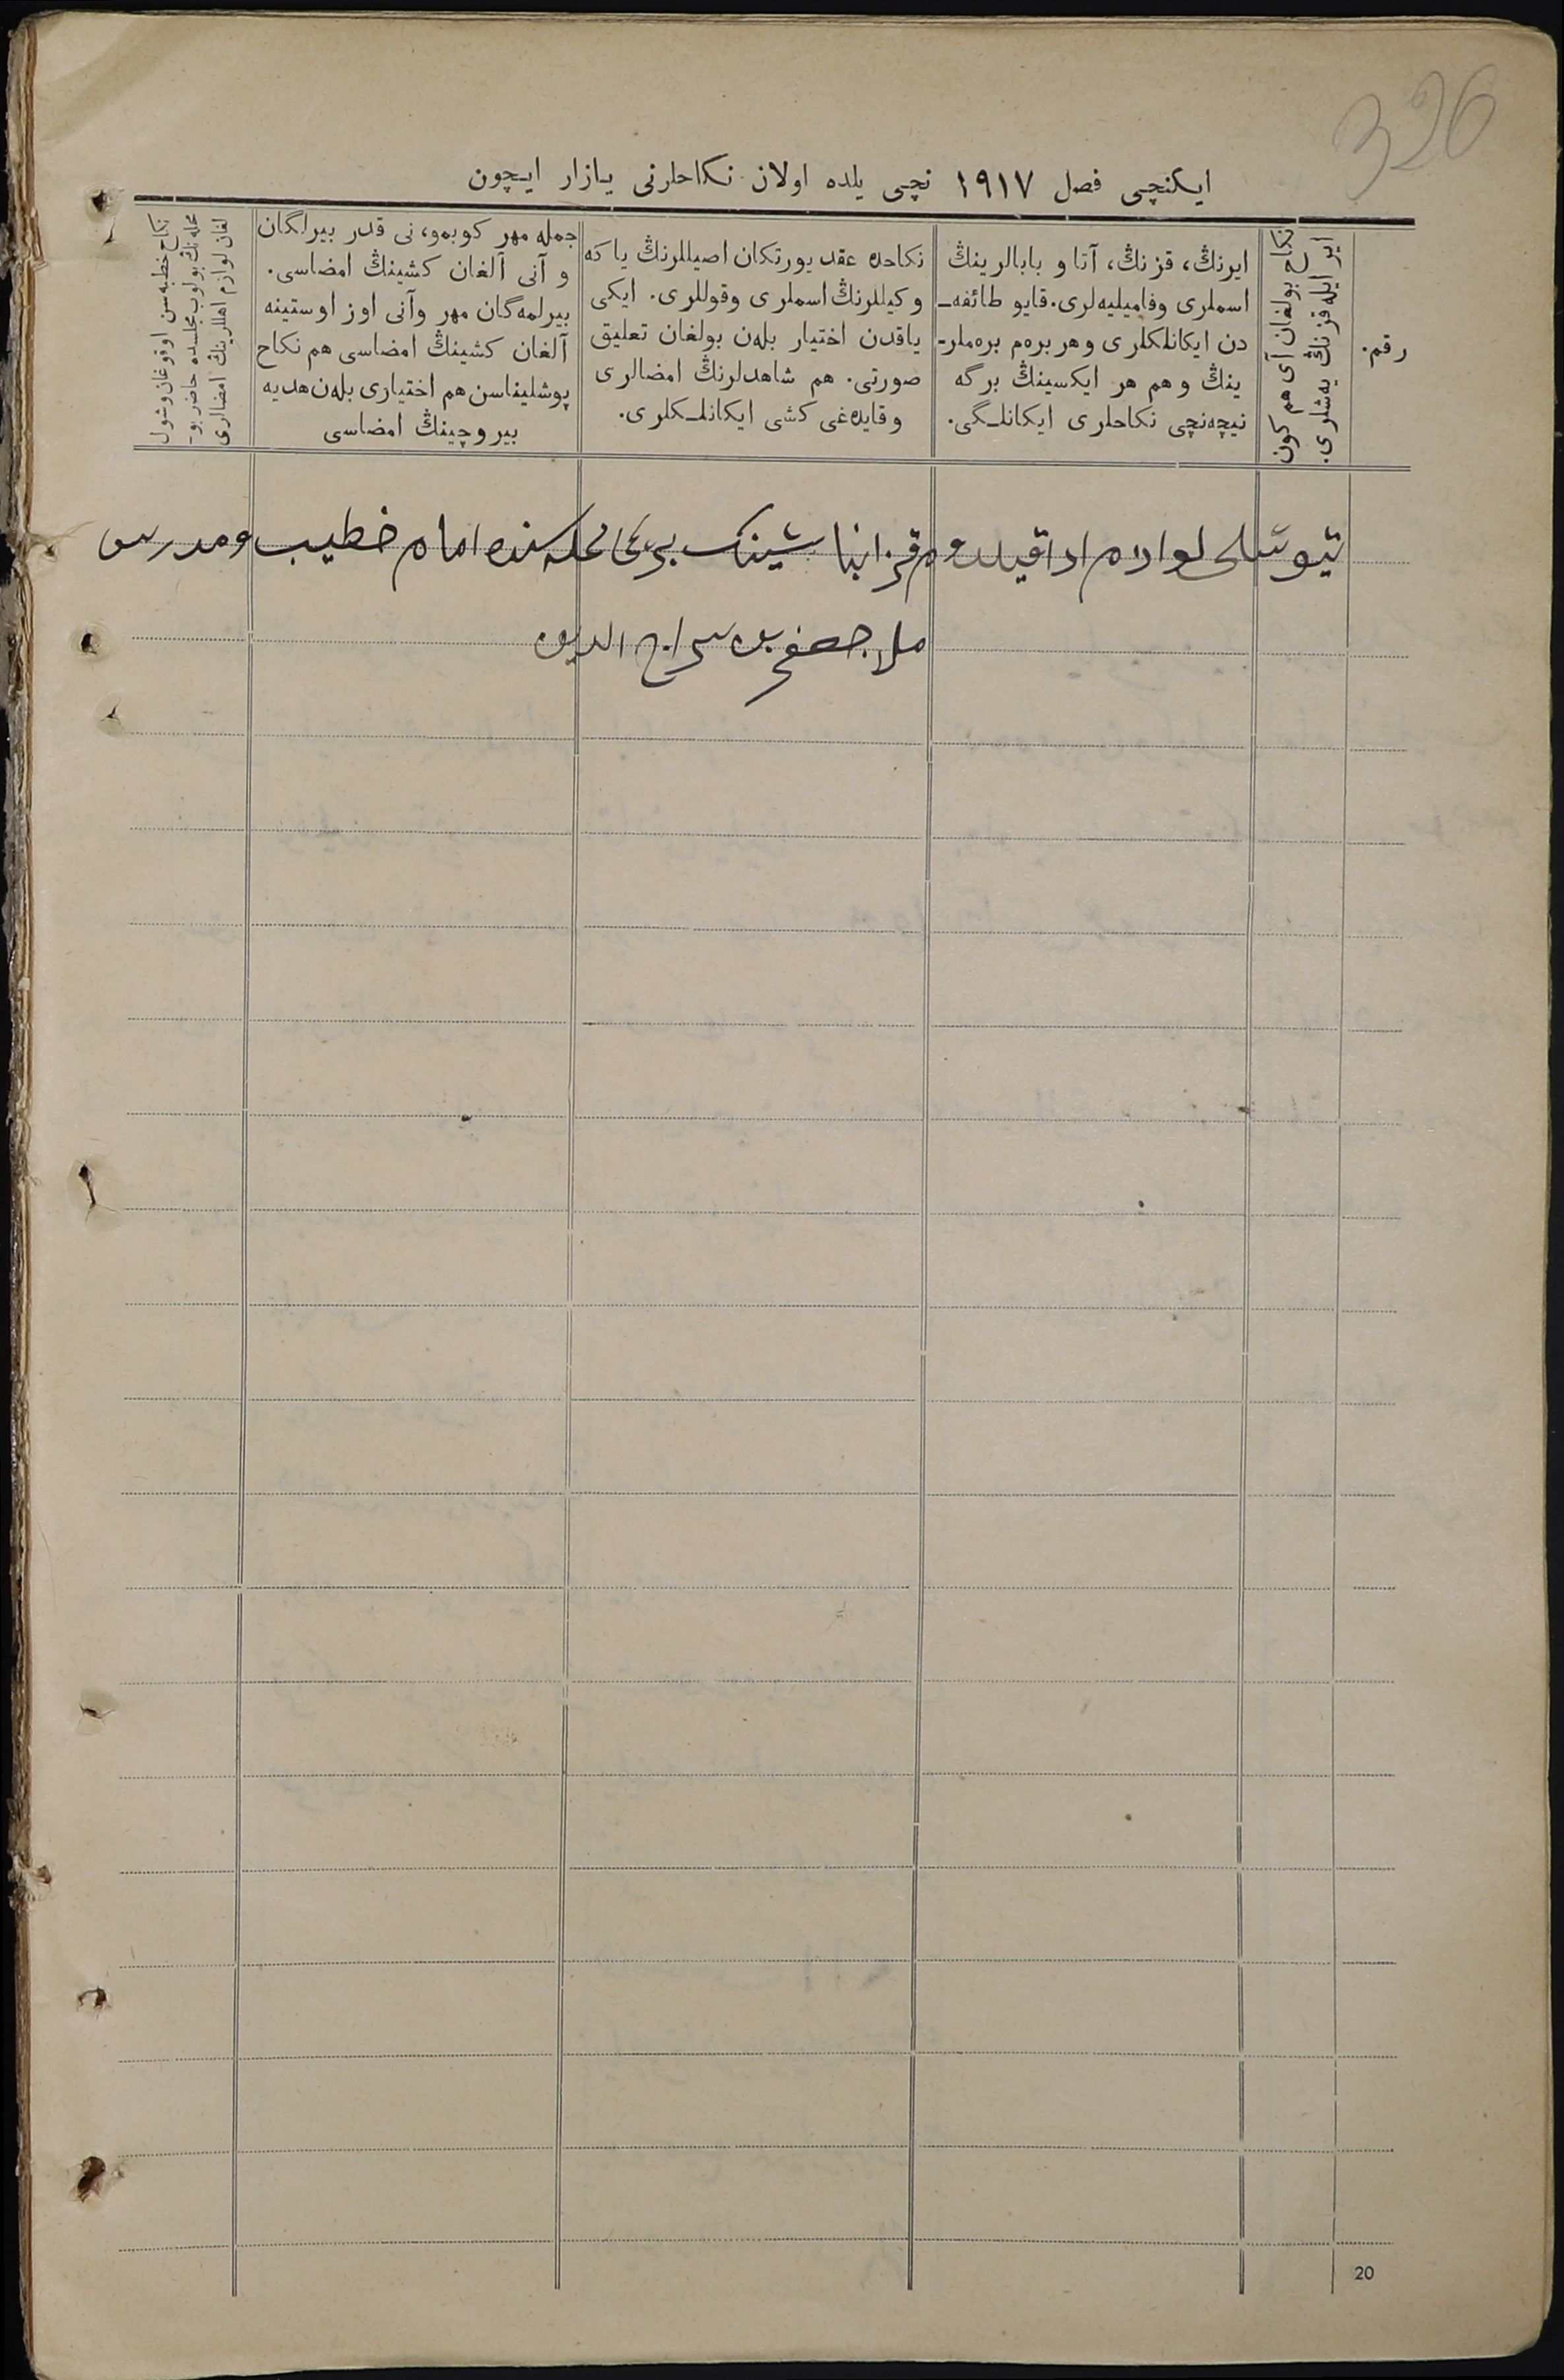 326
ایکنچی فصل ١٩١٧ نچی یلده اولان نکاحلرنی یازار ایچون
رقم.
نکاح بولغان آی هم کون
ایر ایله قزنڭ یه‌شلری.
ایرنڭ، قزنڭ، آتا و بابالرینڭ
اسملری وفامیلیه‌لری. قایو طائفه‌ـ
دن ایکانلکلری و هر بره‌م بره‌ملر-
ینڭ و هم هر ایکسینڭ برگه
نیچه‌نچی نکاحلری ایکانلـگی.
نکاحده عقد یورتکان اصیللرنڭ یا که
وکیللرنڭ اسملری وقوللری. ایکی
یاقدن اختیار بله‌ن بولغان تعلیق
صورتی. هم شاهدلرنڭ امضالری
و قایده‌غی کشی ایکانلـکلری.
جمله مهر کوبمو، نی قدر بیرلگان
و آنی آلغان کشینڭ امضاسی.
بیرلمه‌گان مهر وآنی اوز اوستینه
آلغان کشینڭ امضاسی هم نکاح
پوشلیناسن هم اختیاری بله‌ن هدیه
بیروچینڭ امضاسی
نکاح خطبه‌سن اوقوغان وشول
محله‌نڭ بولوب مجلسده حاضر بو-
لغان لوازم اهللرینڭ امضالری
تیوشلی لوازم ادا قیلدوم قزانباشینک برنچی محله سنده امام خطیب و مدرس
ملا جعفر بن سراج الدین
20